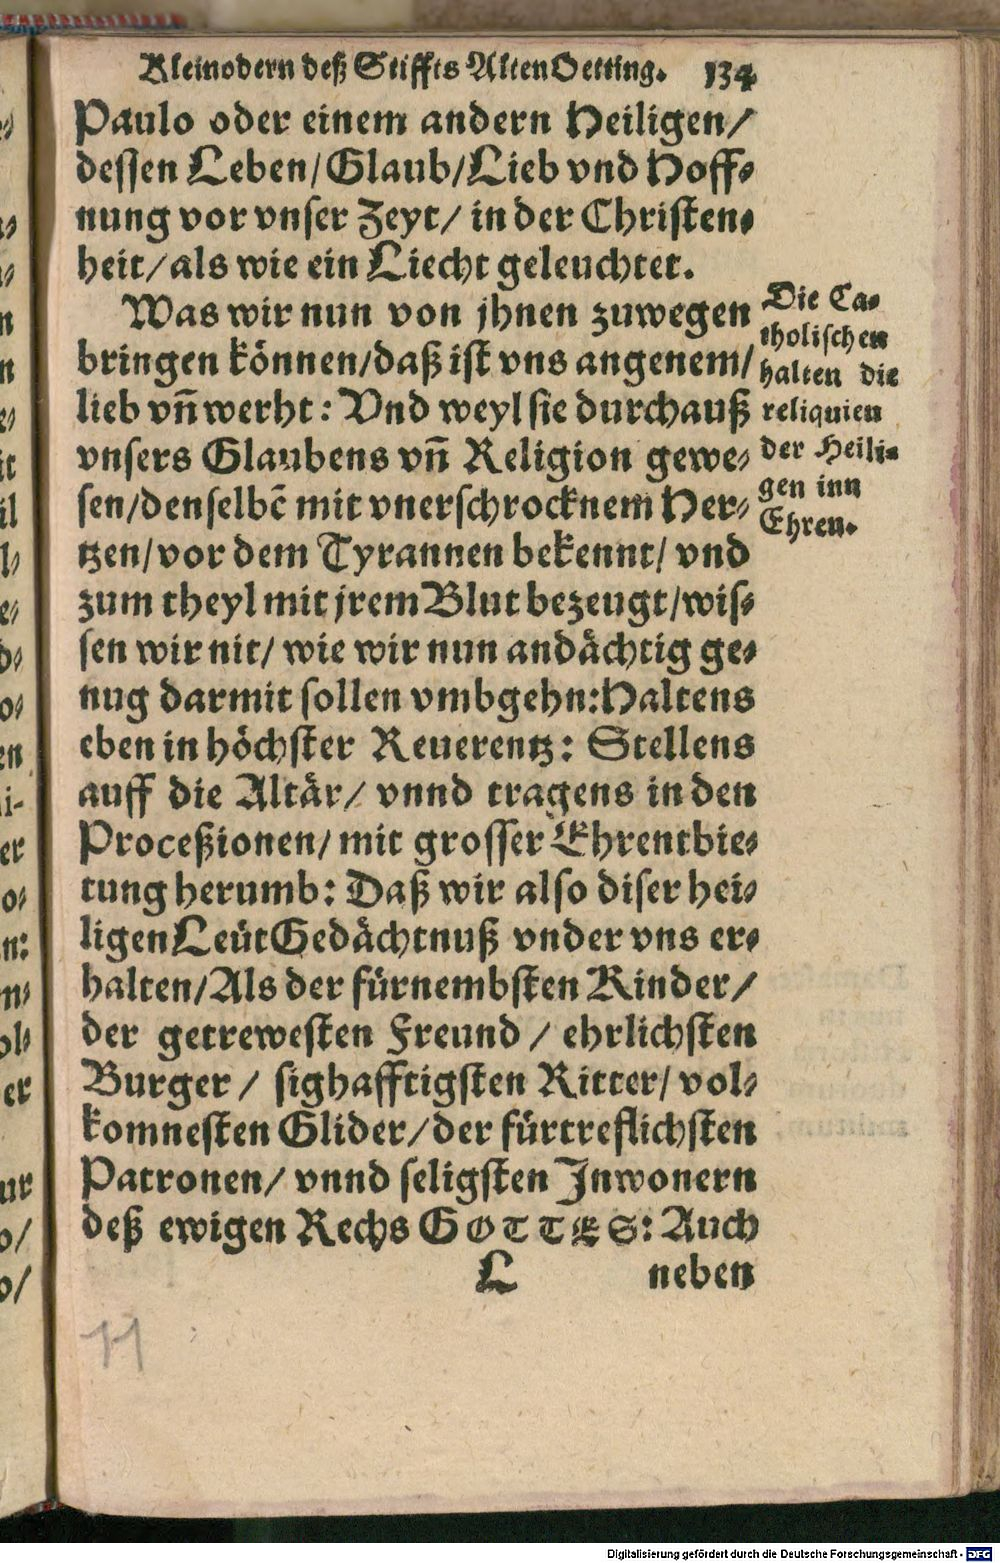 Kleinodern deß Stiffts Alten Oetting. 134
Paulo oder einem andern Heiligen/
dessen Leben/Glaub/Lieb vnd Hoff-
nung vor vnser Zeyt/ in der Christen-
heit/als wie ein Liecht geleuchtet.
Was wir nun von jhnen zuwegen
bringen können/daß ist vns angenem/
lieb vn̄ werht: Vnd weyl sie durchauß
vnsers Glaubens vn̄ Religion gewe-
sen/denselbē mit vnerschrocknem Her-
tzen/vor dem Tyrannen bekennt/ vnd
zum theyl mit jrem Blut bezeugt/wis-
sen wir nit/ wie wir nun andächtig ge-
nug darmit sollen vmbgehn:Haltens
eben in höchster Reuerentz: Stellens
auff die Altär/ vnnd tragens in den
Proceßionen/ mit grosser Ehrentbie-
tung herumb: Daß wir also diser hei-
ligen Leüt Gedächtnuß vnder vns er-
halten/Als der fürnembsten Kinder/
der getrewesten Freund / ehrlichsten
Burger / sighafftigsten Ritter/ vol-
komnesten Glider/der fürtreflichsten
Patronen/ vnnd seligsten Inwonern
deß ewigen Rechs GOTTES: Auch
L neben
Die Ca-
tholischen
halten die
reliquien
der Heili-
gen inn
Ehren.
11
Digitalisierung gefördert durch die Deutsche Forschungsgemeinschaft - DFG